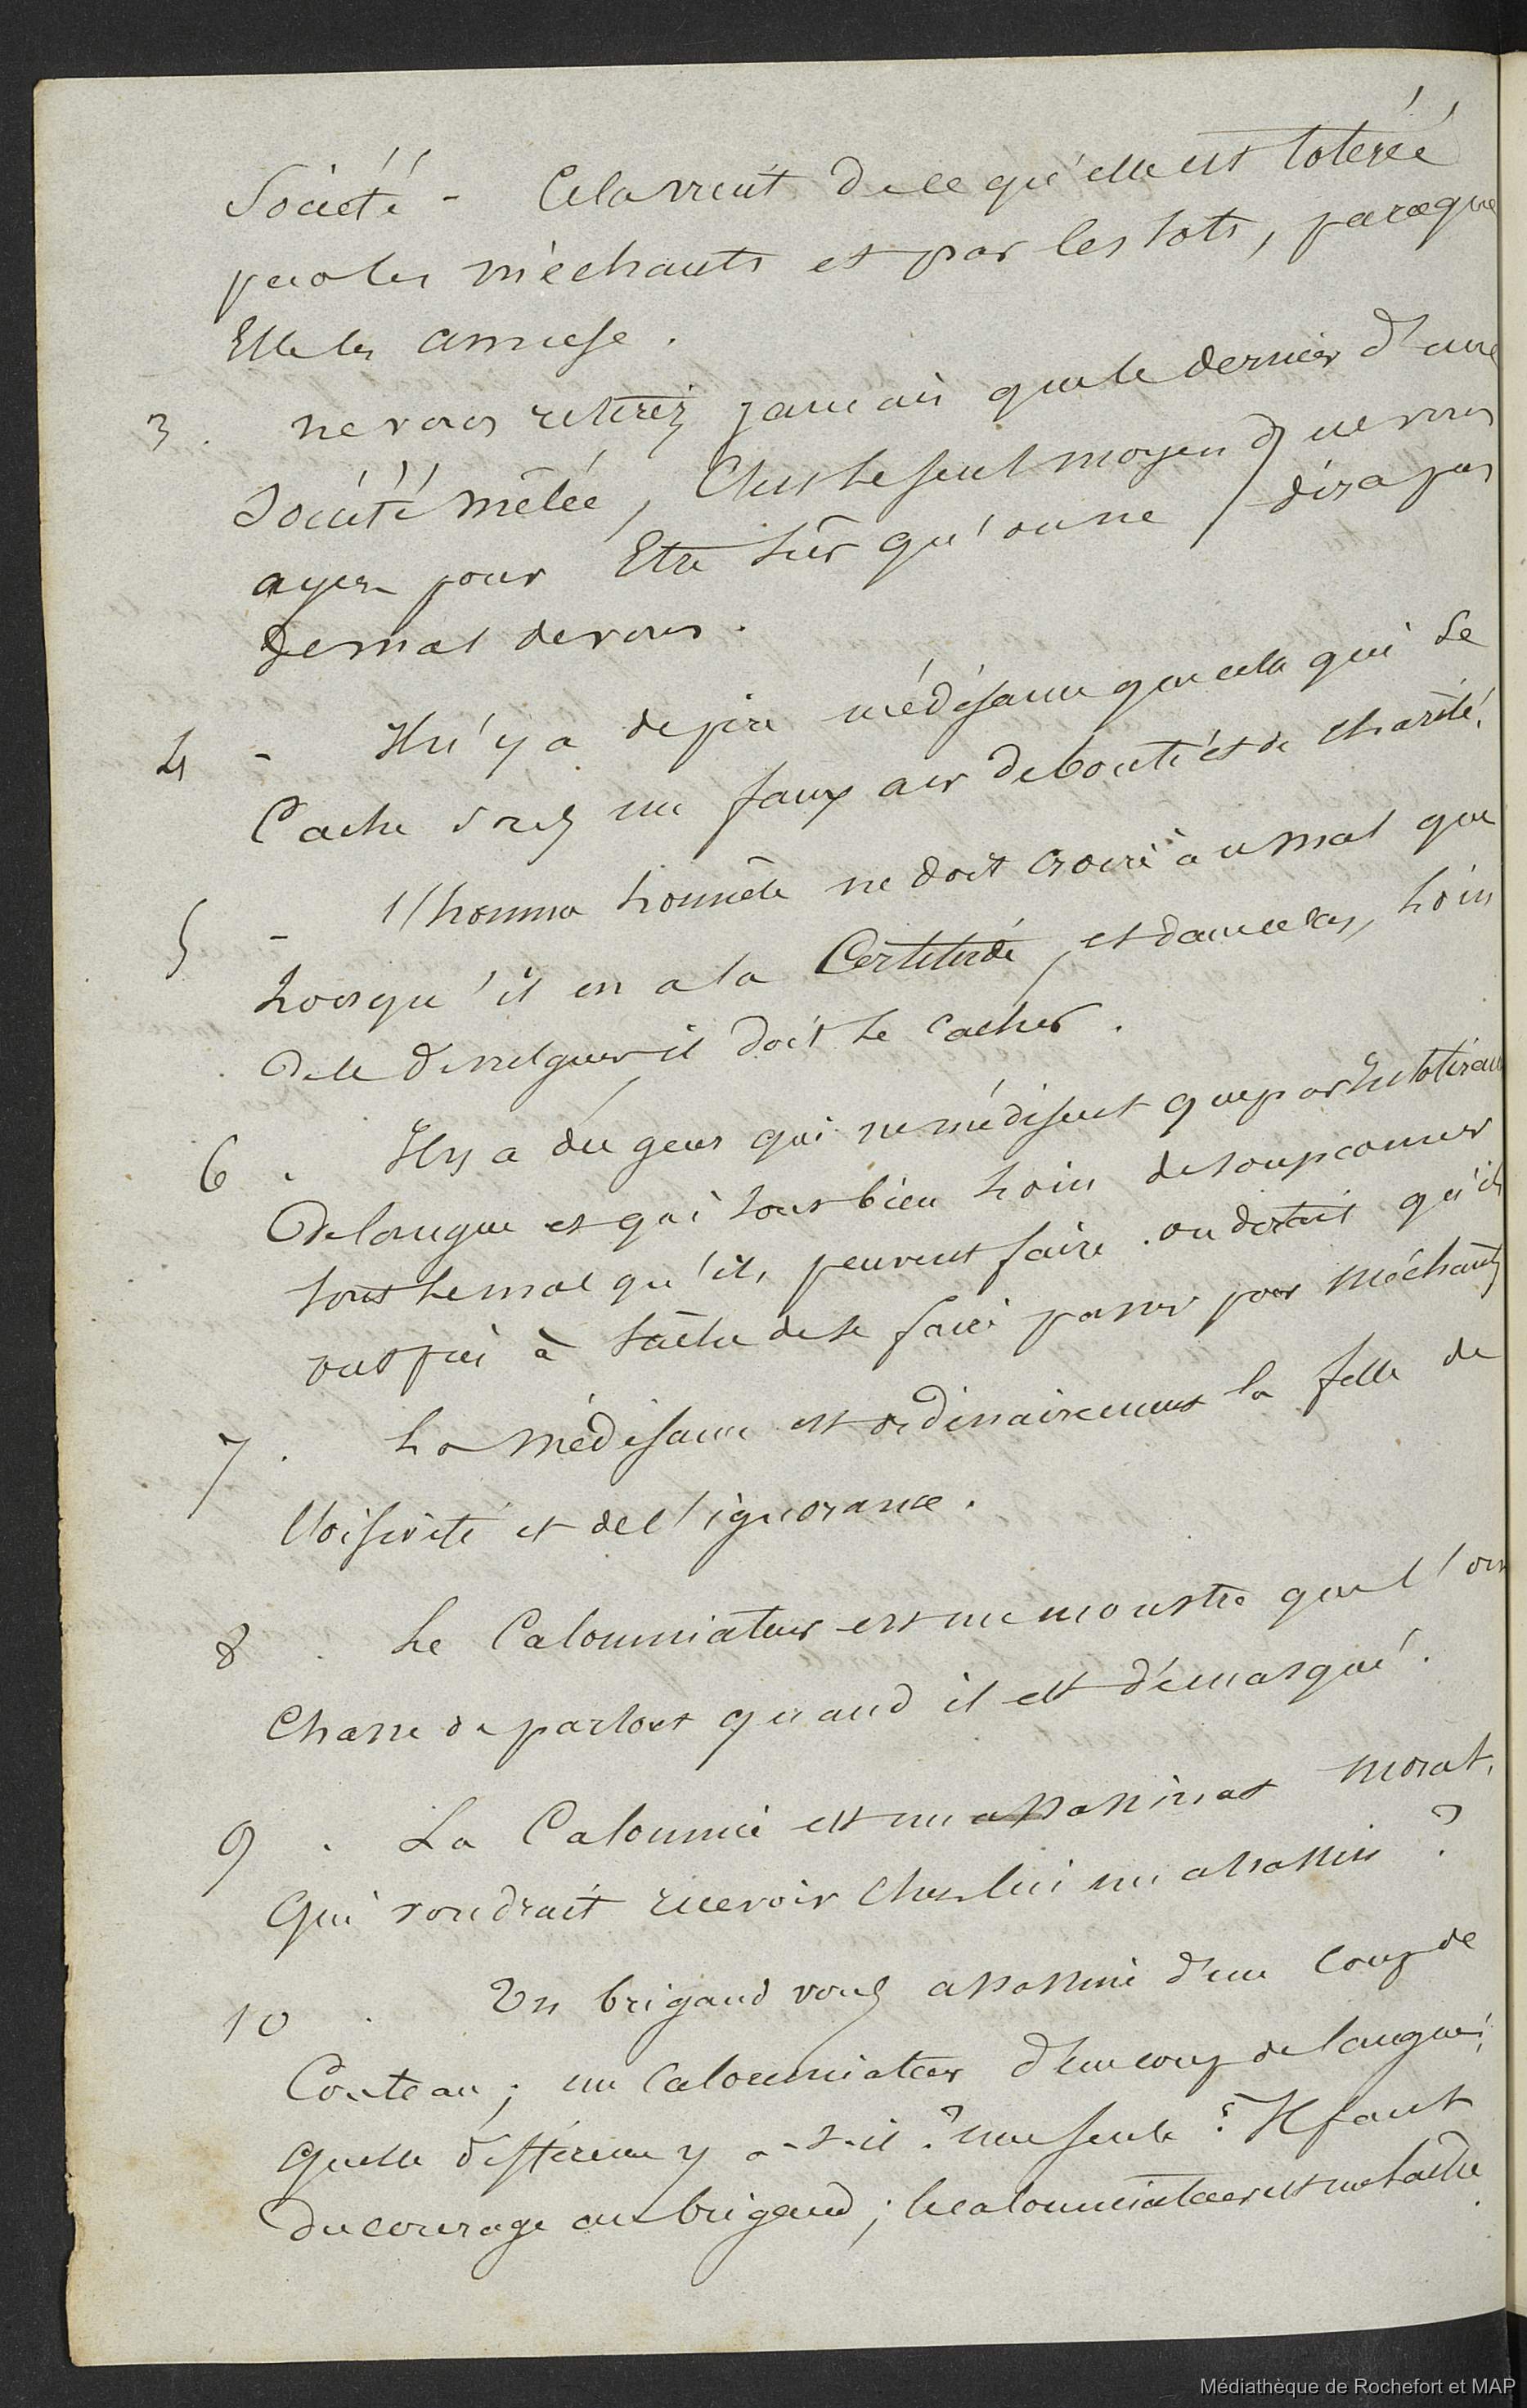 Société - Cela vient de ce qu'elle est tolérée
par les méchants et par les sots, parceque
Elle les amuse.
3. ne vous retirez jamais que le dernier d'une
Société mêlée, C'est le seul moyen que vous
ayez pour Etre sûr qu'on ne dira pas
de mal de vous.
4 - Il n'y a de pire médisance que cela qui se
Cache sous un faux air de bonté et de charité.
5 - l'homme honnête ne doit croire au mal que
Lorsqu'il en a la Certitude, et dans ce cas, loin
De le divulguer il doit le cacher.
6. Il y a des gens qui ne médisent que par
De langue et qui sont bien loin de soupçonner
tout le mal qu'ils peuvent faire. on dirait qu'ils
ont pris à tâche de se faire passer pour méchants
7. La médisance est ordinairement la fille de
l'oisiveté et de l'ignorance.
8. Le Calomniateur est un monstre que l'on
Chasse de partout quand il est démasqué.
9. La Calomnie est un assassinat moral.
Qui voudrait recevoir chez lui un assassin ?
10. Un brigand vous assassine d'un coup de
Couteau ; un calomniateur d'un coup de langue ;
quelle différence y a-t-il ? une seule : Il faut
Du courage au brigand ; le calomniateur est un lâche.
Médiathèque de Rochefort et MAP